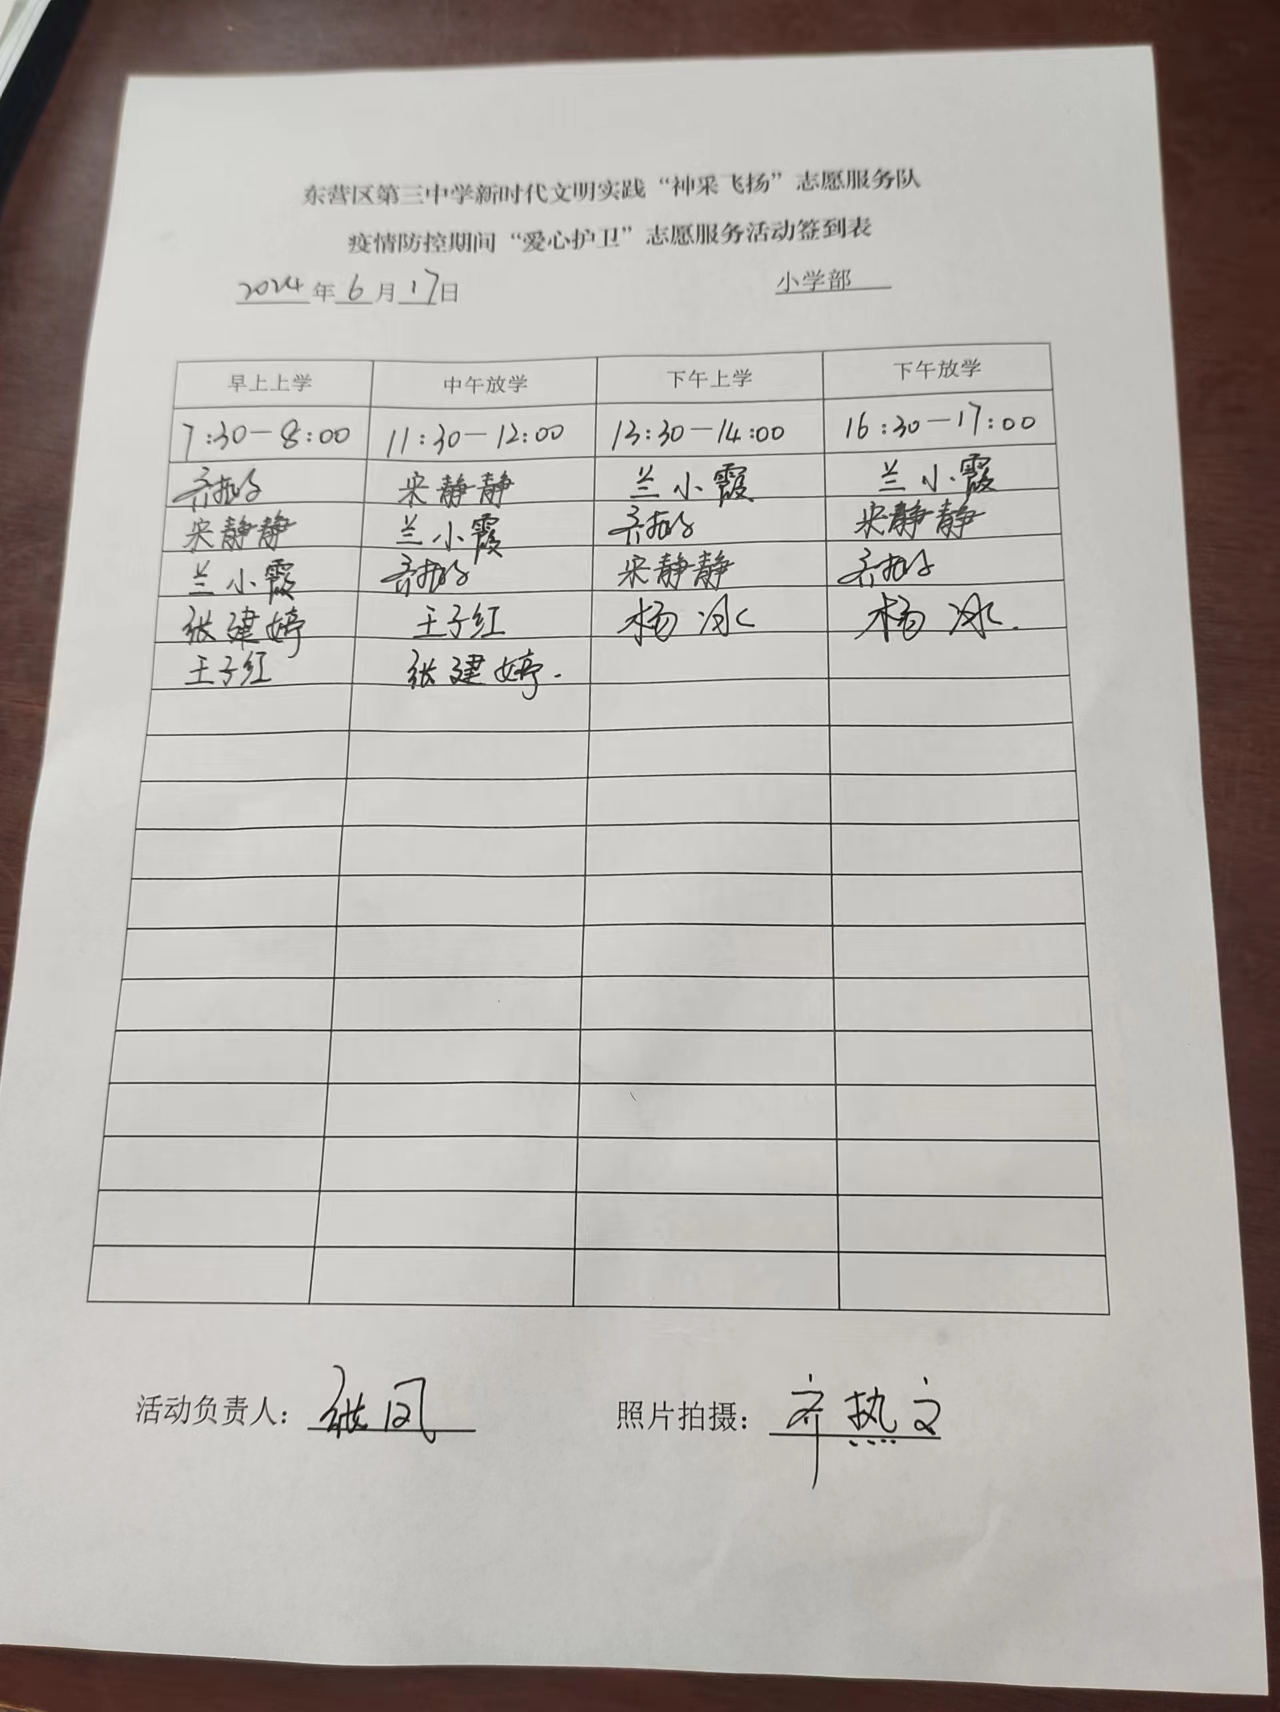 东营区第三中学新时代文明实践“神采飞扬”志愿服务队
疫情防控期间“爱心护卫”志愿服务活动签到表
2024年6月17日 小学部
早上上学 中午放学 下午上学 下午放学
7:30-8:00 11:30-12:00 13:30-14:00 16:30-17:00
宋静静 兰小霞 兰小霞
宋静静 兰小霞 宋静静
兰小霞 宋静静
张建婷 王子红 杨冰 杨冰.
王子红 张建婷.
活动负责人: 张凤 照片拍摄: 齐热文